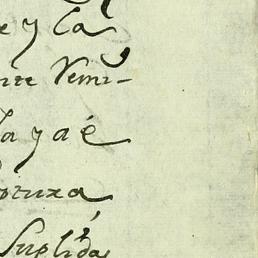 e y la
nte Vemi-
la y a é
otuxa
Suplida